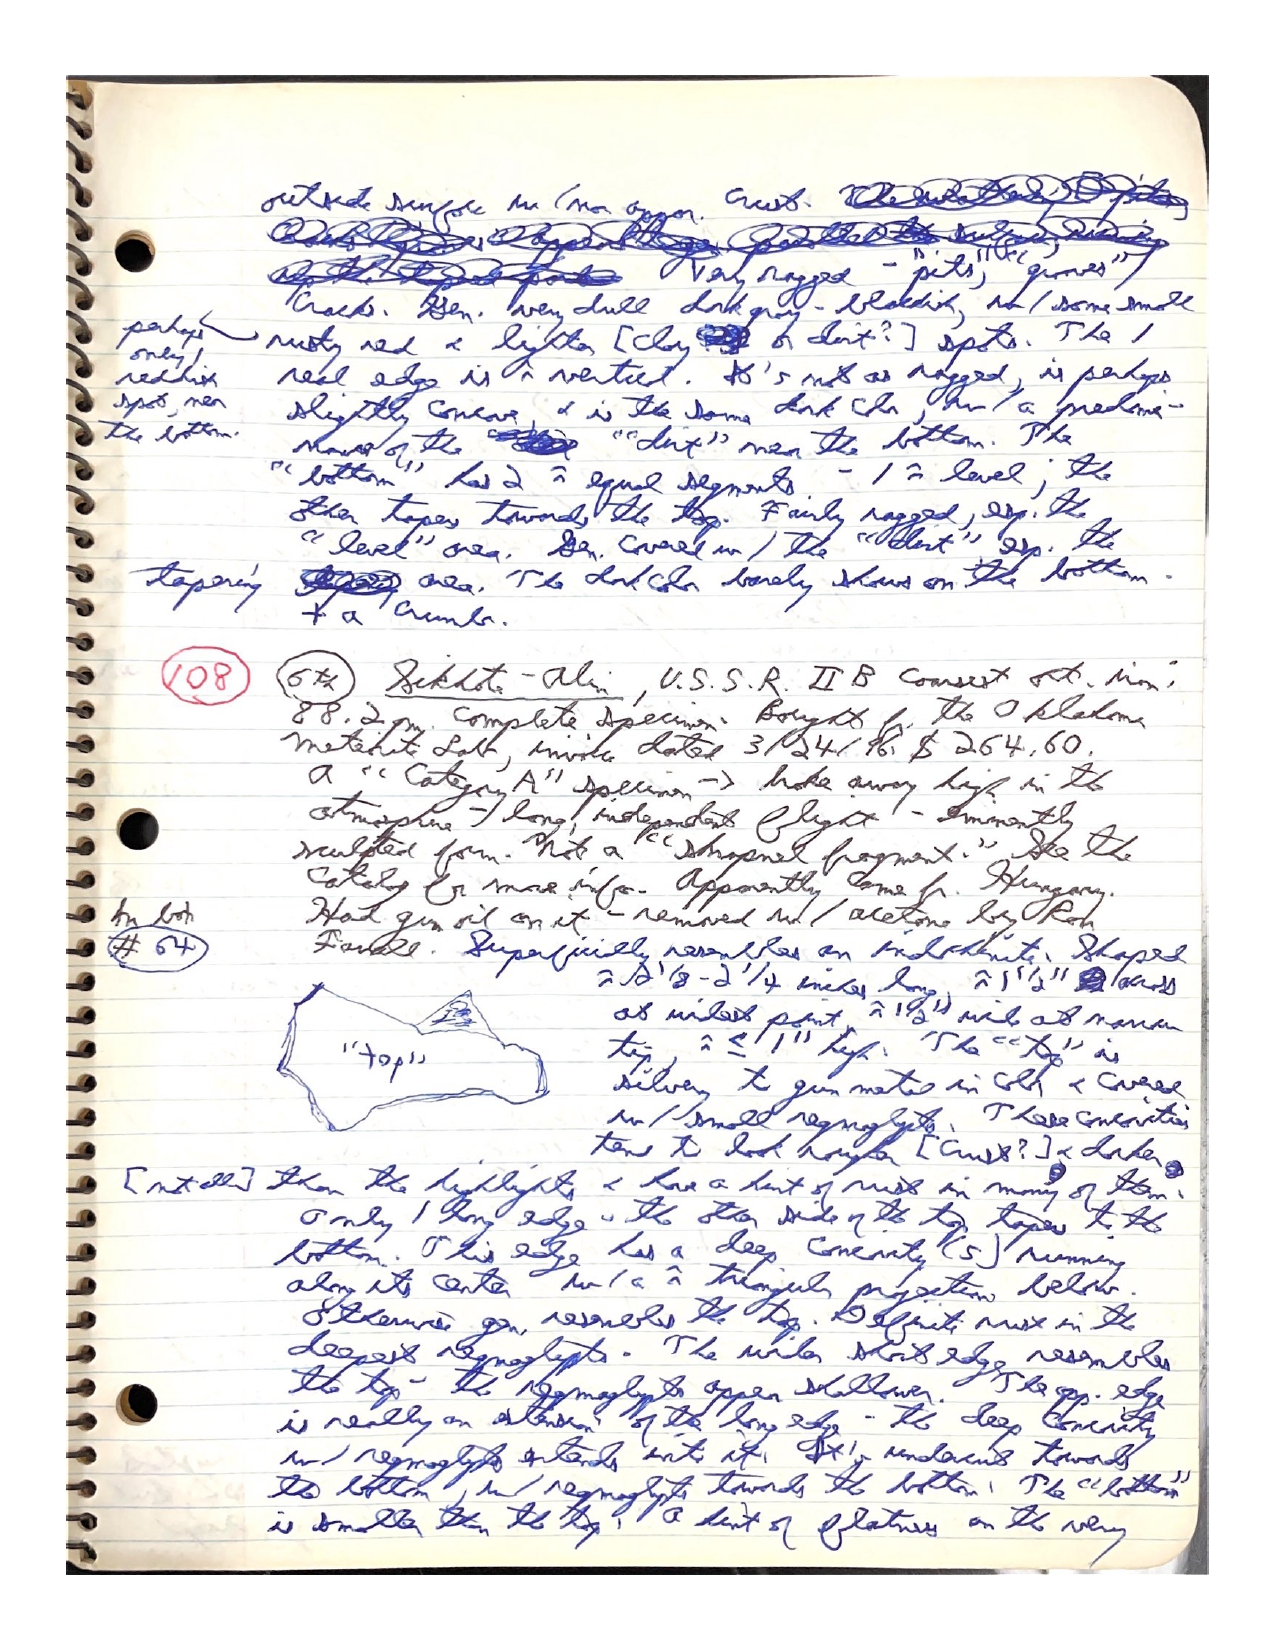 outside surface w/ no appar. crust.
Very ragged - "pits", "grooves",
cracks. Gen. very dull dark gray - blackish, w/ some small
perhaps
only 1
reddish
spot, near
the bottom.
rusty red & lighter [clay or dirt?] spots. The 1
real edge is ≈ vertical. It's not as ragged, is perhaps
slightly concave, & is the same dark color, w/ a predomi-
nance of the "dirt" near the bottom. The
"bottom" has 2 ≈ equal segments - 1 ≈ level; the
other tapers towards the top. Fairly ragged, esp. the
"level" area. Gen. covered w/ the "dirt" esp. the
tapering area. The dark color barely shows on the bottom.
+ a crumb.
108 6th Sikhote-Alin, U.S.S.R. IIB Coarsest oct. iron;
88.2 gm. complete specimen. Bought fr. the Oklahoma
Meteorite Lab, invoice dated 3/24/96. $264.60.
A "Category A" specimen -> broke away high in the
atmosphere -> long, independent flight - eminently
sculpted form. Not a "shrapnel fragment." See the
catalog for more info. Apparently came fr. Hungary.
In box
# 64
Had gun oil on it - removed w/ acetone by Ron
Farrell. Superficially resembles an indochinite. Shaped
"top"
≈ 2 1/8 - 2 1/4 inches long, ≈ 1 1/2" across
at widest point, ≈ 1/2" wide at narrow
tip, ≈ ≤ 1" high. The "top" is
silvery to gun metal in color & covered
w/ small regmaglypts. These concavities
tend to look rougher [crust?] & darker
[not all] than the highlights & have a hint of rust in many of them.
Only 1 long edge - the other side of the top tapers to the
bottom. This edge has a deep concavity(s) running
along its center w/ a ≈ triangular projection below.
Otherwise gen. resembles the top. Definite rust in the
deepest regmaglypts. The wider short edge resembles
the top - the regmaglypts appear shallower. The opp. edge
is really an extension of the long edge - the deep concavity
w/ regmaglypts extends into it. It's undercut towards
the bottom, w/ regmaglypts towards the bottom. The "bottom"
is smaller than the top. A hint of flatness on the very